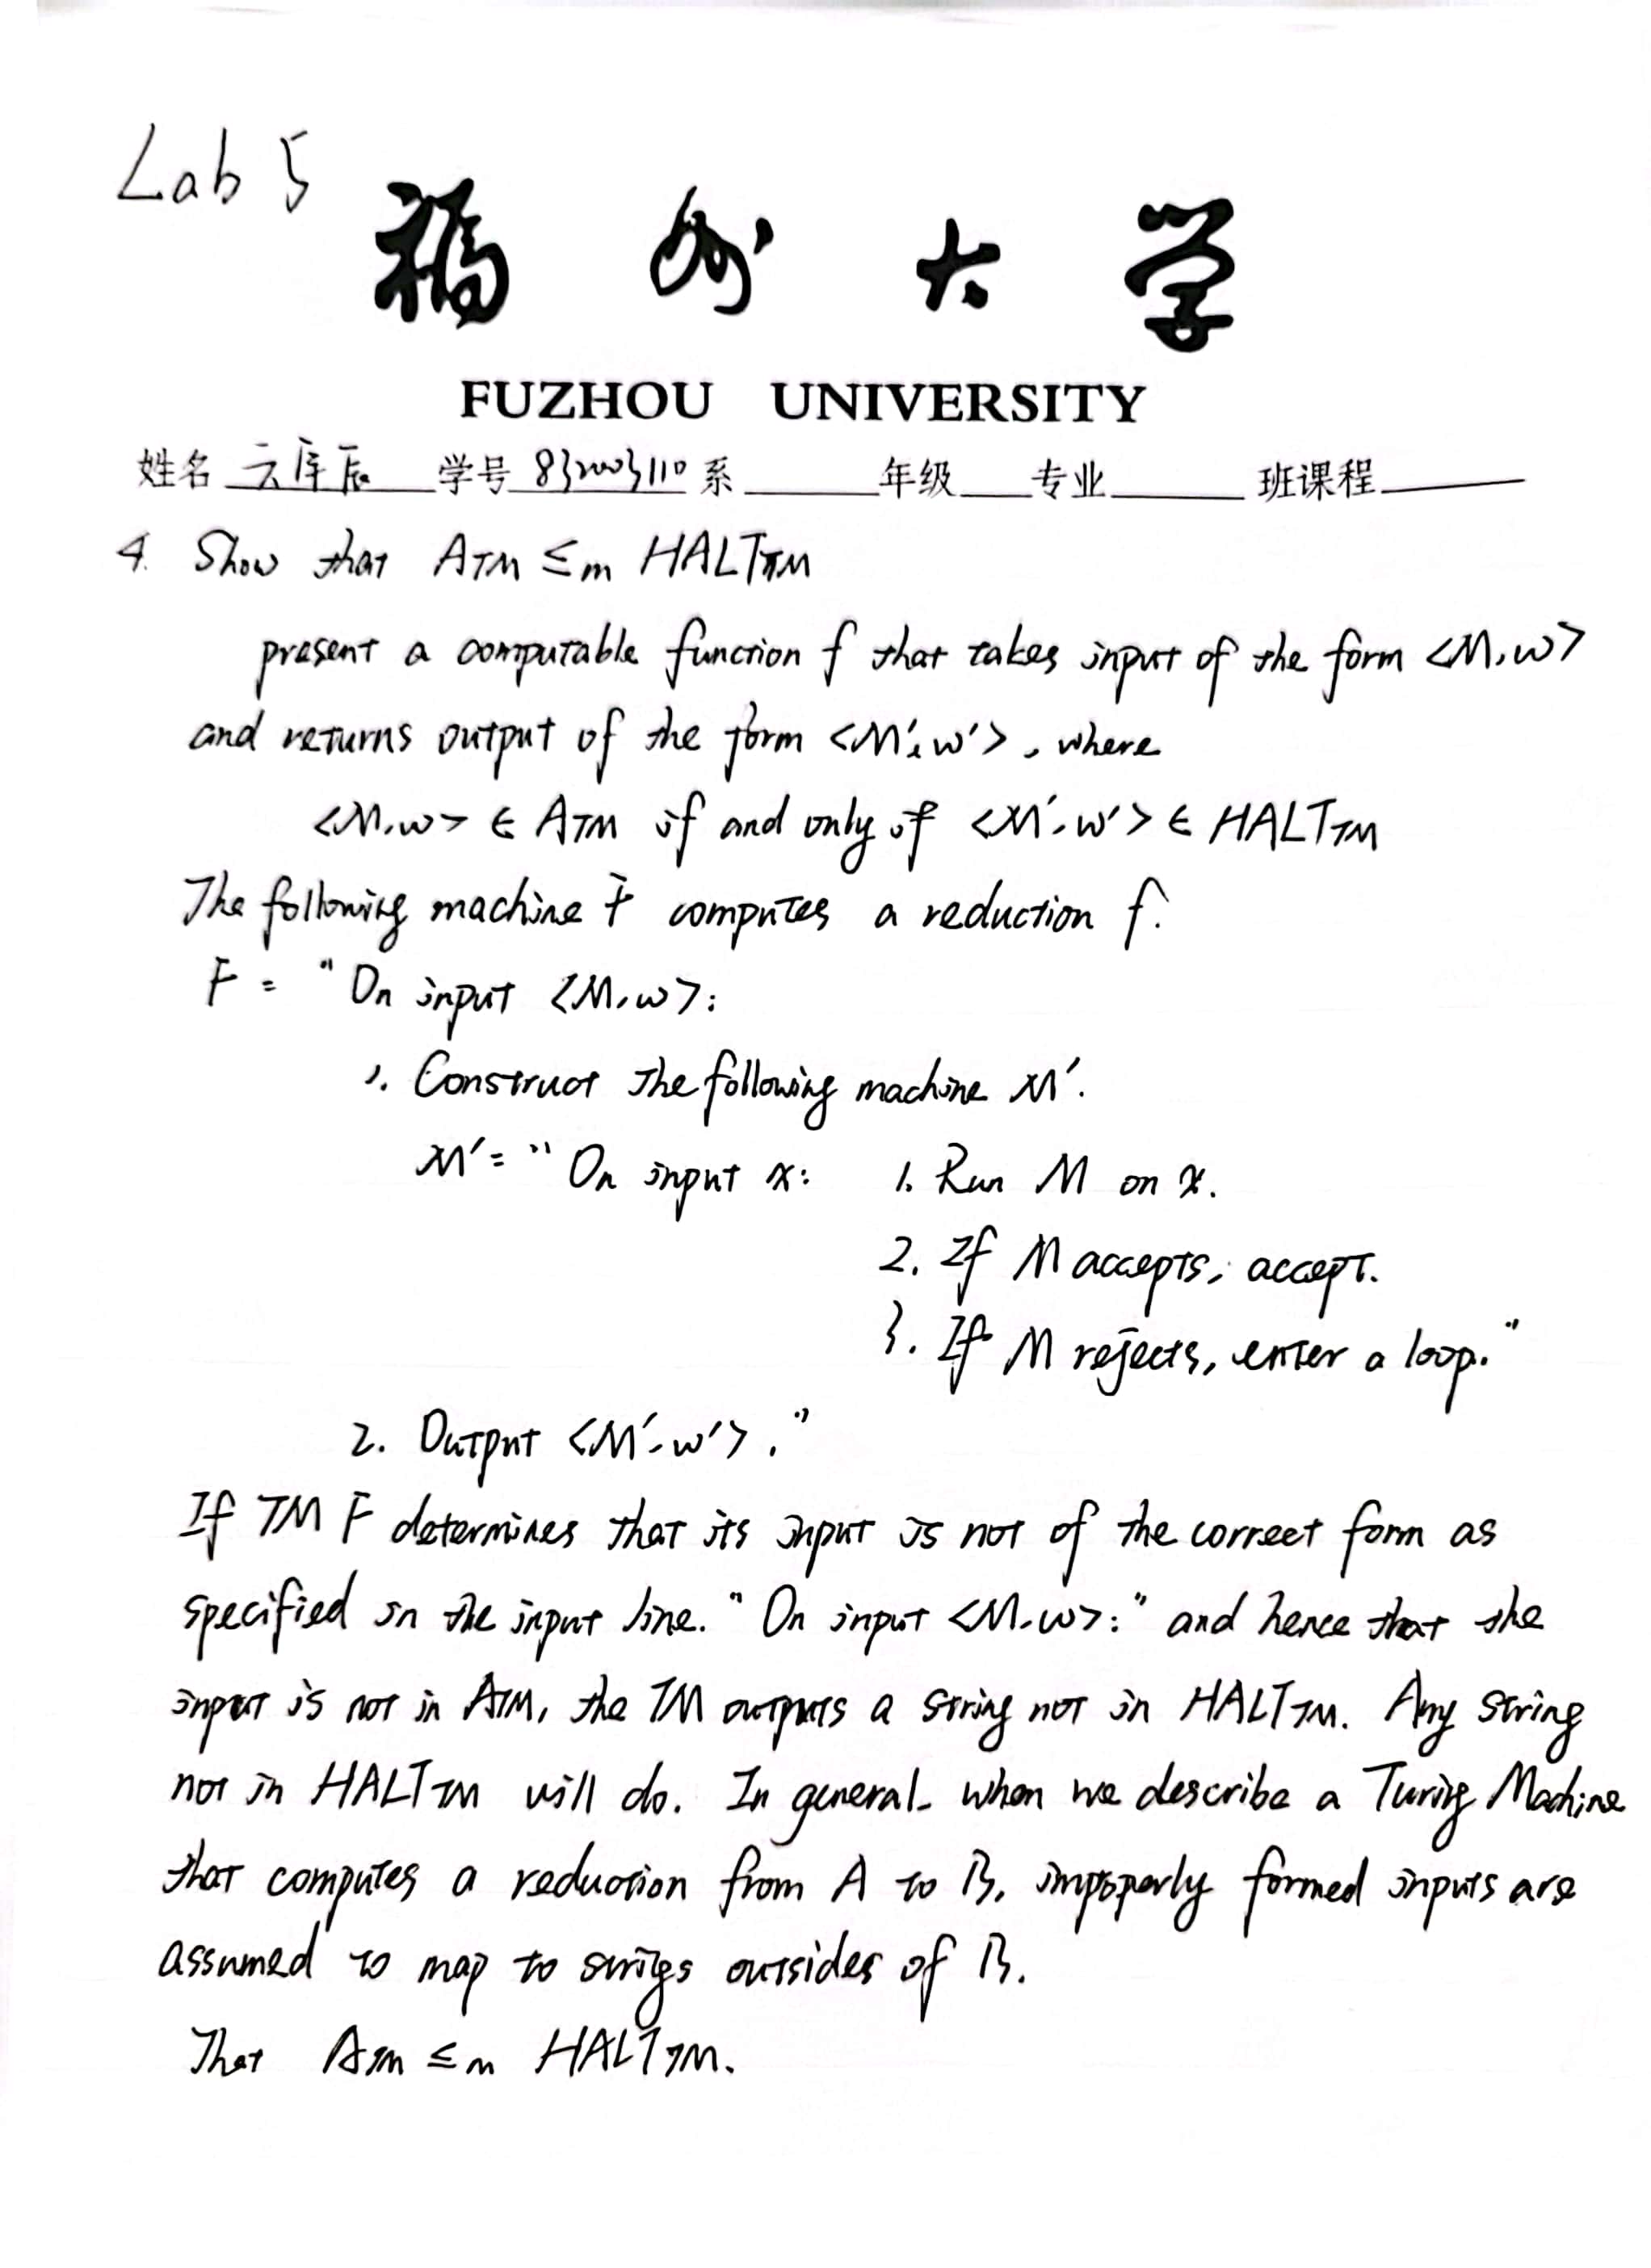 Lab 5
福州大学
FUZHOU UNIVERSITY
姓名 云库辰 学号 832003110 系 年级 专业 班课程
4. Show that ATM ≤m HALTTM
present a computable function f that takes input of the form <M,w>
and returns output of the form <M',w'>, where
<M,w> ∈ ATM if and only if <M',w'> ∈ HALTTM
The following machine F computes a reduction f.
F = "On input <M,w>:
1. Construct the following machine M'.
M' = "On input x: 1. Run M on x.
2. If M accepts, accept.
3. If M rejects, enter a loop."
2. Output <M',w'>."
If TM F determines that its input is not of the correct form as
specified in the input line. "On input <M,w>:" and hence that the
input is not in ATM, the TM outputs a string not in HALTTM. Any string
not in HALTTM will do. In general, when we describe a Turing Machine
that computes a reduction from A to B, improperly formed inputs are
assumed to map to strings outsides of B.
That ATM ≤m HALTTM.